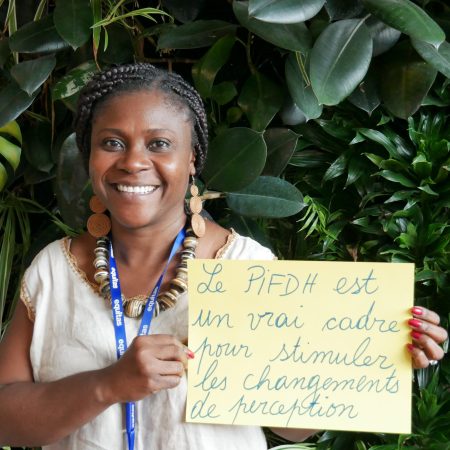 equitas
equitas
Le PIFDH est
un vrai cadre
pour stimuler
les changements
de perception